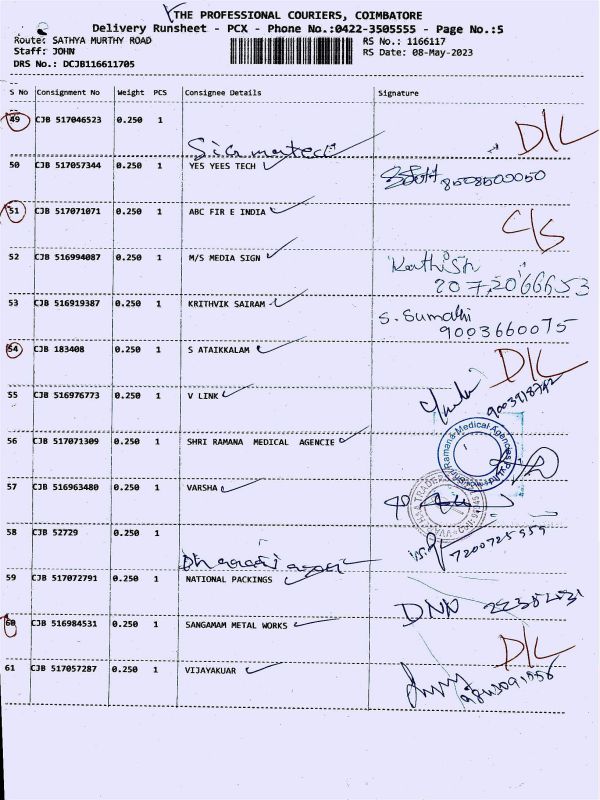 THE PROFESSIONAL COURIERS, COIMBATORE
Delivery Runsheet - PCX - Phone No.:0422-3505555 - Page No.:5
Route: SATHYA MURTHY ROAD RS No.: 1166117
Staff: JOHN RS Date: 08-May-2023
DRS No.: DCJB116611705
S No Consignment No Weight PCS Consignee Details Signature
49 CJB 517046523 0.250 1 D/L
50 CJB 517057344 0.250 1 YES YEES TECH 8508500050
51 CJB 517071071 0.250 1 ABC FIR E INDIA C/S
52 CJB 516994087 0.250 1 M/S MEDIA SIGN Kathish
2072066653
53 CJB 516919387 0.250 1 KRITHVIK SAIRAM S. Sumathi
9003660075
54 CJB 183408 0.250 1 S ATAIKKALAM D/L
55 CJB 516976773 0.250 1 V LINK
56 CJB 517071309 0.250 1 SHRI RAMANA MEDICAL AGENCIE
57 CJB 516963480 0.250 1 VARSHA
58 CJB 52729 0.250 1 7200725959
59 CJB 517072791 0.250 1 NATIONAL PACKINGS
60 CJB 516984531 0.250 1 SANGAMAM METAL WORKS D/L
61 CJB 517057287 0.250 1 VIJAYAKUAR